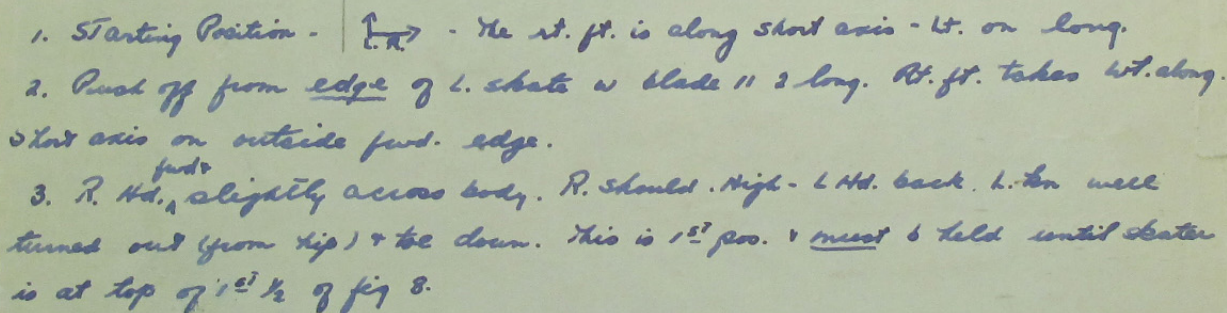 1. Starting Position - L.R. - The rt. ft. is along short axis - Lt. on long.
2. Push off from edge of L. skate w blade 11 2 long. Rt. ft. takes wt. along
short axis on outside fwd. edge.
3. R. Hd. fwd + slightly across body. R. should. High - L Hd. back. L. kn well
turned out (from hip) + toe down. This is 1st pos. + must b held until skater
is at top of 1st 1/2 of fig 8.